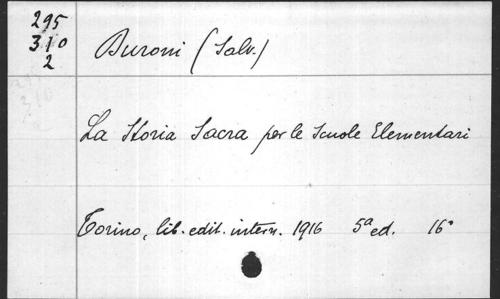 295
310
2
Buroni (Salv.)
La Storia Sacra per le Scuole Elementari
Torino, lib. edit. intern. 1916 5ª ed. 16°